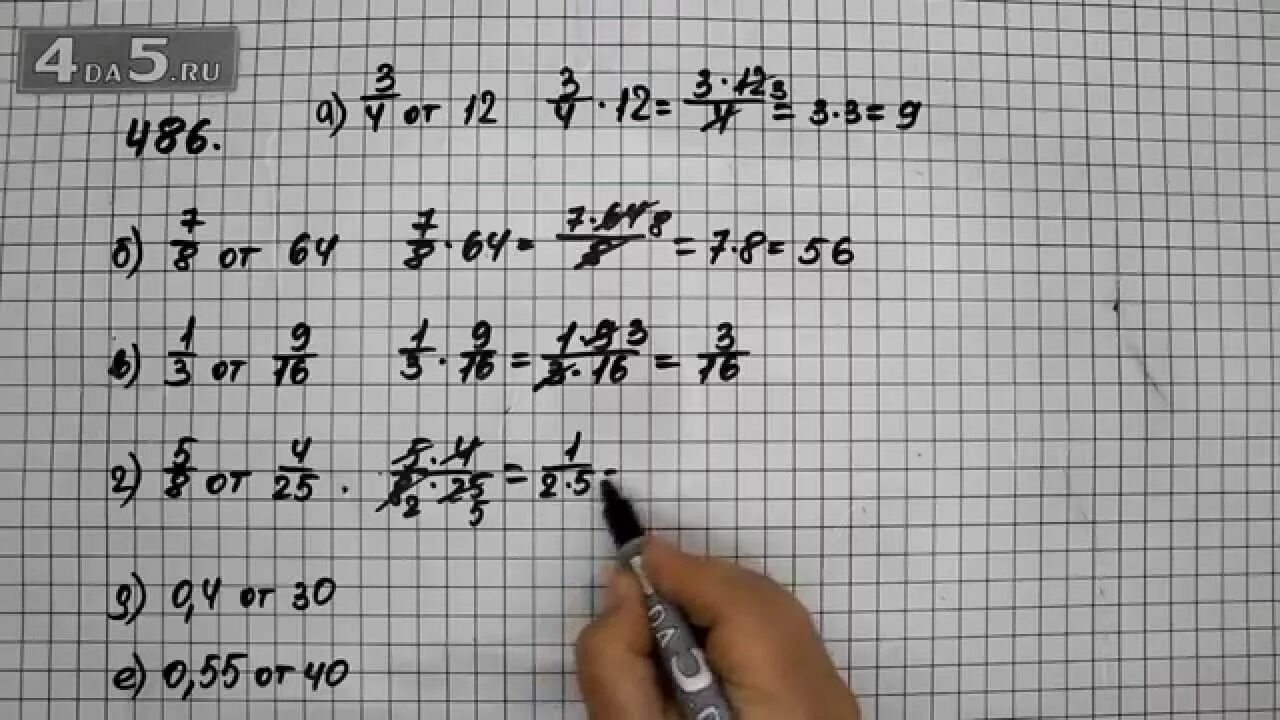 4DA5.RU
486.
а) 3/4 от 12 3/4 · 12 = 3·12 3/4 = 3·3 = 9
б) 7/8 от 64 7/8 · 64 = 7·64 8/8 = 7·8 = 56
в) 1/3 от 9/16 1/3 · 9/16 = 1·9 3/3·16 = 3/16
г) 5/8 от 4/25 . 5·4/8·25 2 5 = 1/2·5 =
д) 0,4 от 30
е) 0,55 от 40